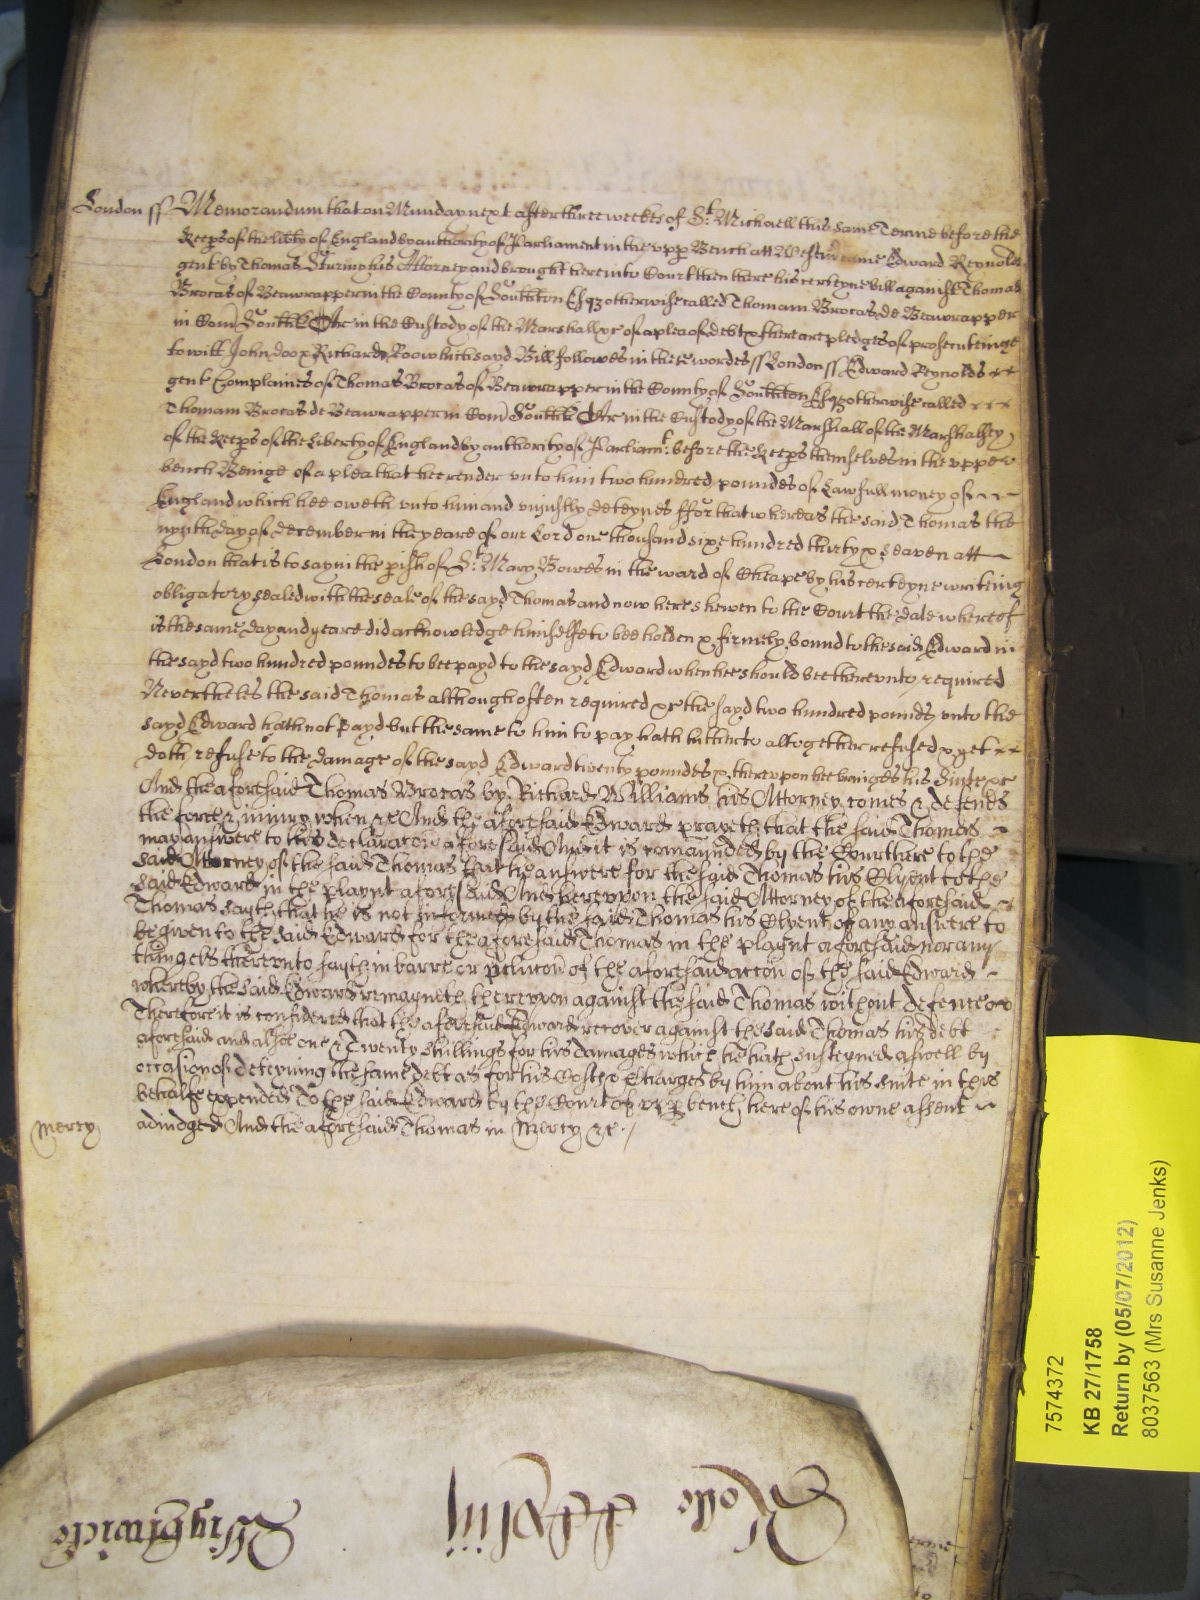 London ss Memorandum that on Munday next after three weekes of St Michaell this same Terme before the
Keeps of the libty of England by authority of Parliament in the vpp Bench att Westm came Edward Reynolds
gent by Thomas Sturmy his Attorney and brought here into Court then there his certeyne Bill against Thomas
Brocas of Beawrapper in the County of Southton Esqz otherwise called Thomam Brocas de Beawrapper
in Com Southt Ar in the Custody of the Marshall &c of a plea of debt & there are pledges of prosecuteinge
to witt John doo & Richard Roo which sayd Bill followes in these wordes ss London ss Edward Reynolds
gent Complaines of Thomas Brocas of Beawrapper in the County of Southton Esqz otherwise called
Thomam Brocas de Beawrapper in Com Southt Ar in the Custody of the Marshall of the Marshallsey
of the Keeps of the Liberty of England by authority of Parliamt before the Keeps themselves in the vpper
bench Beinge of a plea that hee render vnto him two hundred poundes of Lawfull money of
England which hee oweth vnto him and vniustly deteynes ffor that whereas the said Thomas the
nynth day of december in the yeare of our Lord one thousand sixe hundred thirty & seaven att
London that is to say in the pish of St Mary Bowes in the ward of Cheape by his certeyne writeing
obligatory sealed with the seale of the sayd Thomas and now here shewen to the Court the date whereof
is the same day and yeare did acknowledge himselfe to bee holden & firmely bound to the said Edward in
the sayd two hundred poundes to bee payd to the sayd Edward when hee should bee therevnto required
Neverthelес the said Thomas although often required &c the sayd two hundred pounds vnto the
sayd Edward hath not payd but the same to him to pay hath hitherto altogether refused & yet
doth refuse to the damage of the sayd Edward twenty poundes & therevpon hee bringes his Suite &c
And the aforesaid Thomas Brocas by Richard Williams his Attorney comes & defends
the force & iniury when &c And the aforesaid Edward prayeth that the said Thomas
may answere to his declaracon aforesaid And it is comaunded by the Court here to the
said Attorney of the said Thomas that he answere for the said Thomas his Clyent to the
said Edward in the playnt aforesaid And herevpon the said Attorney of the aforesaid
Thomas sayth that he is not informed by the said Thomas his Clyent of any answere to
be given to the said Edward for the aforesaid Thomas in the playnt aforesaid nor any
thinge els therevnto sayth in barre or pclucon of the aforesaid accon of the said Edward
whereby the said Edward remayneth therevpon against the said Thomas without defence &c
Therefore it is considered that the aforesaid Edward recover against the said Thomas his debt
aforesaid and alsoe one & Twenty shillings for his damages which he hath susteyned aswell by
occasion of deteyning the same debt as for his Costs & Charges by him about his suite in this
behalfe expended To the said Edward by the Court of vpp bench here of his owne assent
Mercy adiudged And the aforesaid Thomas in Mercy &c
Wightwicke
Rode
7574372
KB 27/1758
Return by (05/07/2012)
8037563 (Mrs Susanne Jenks)